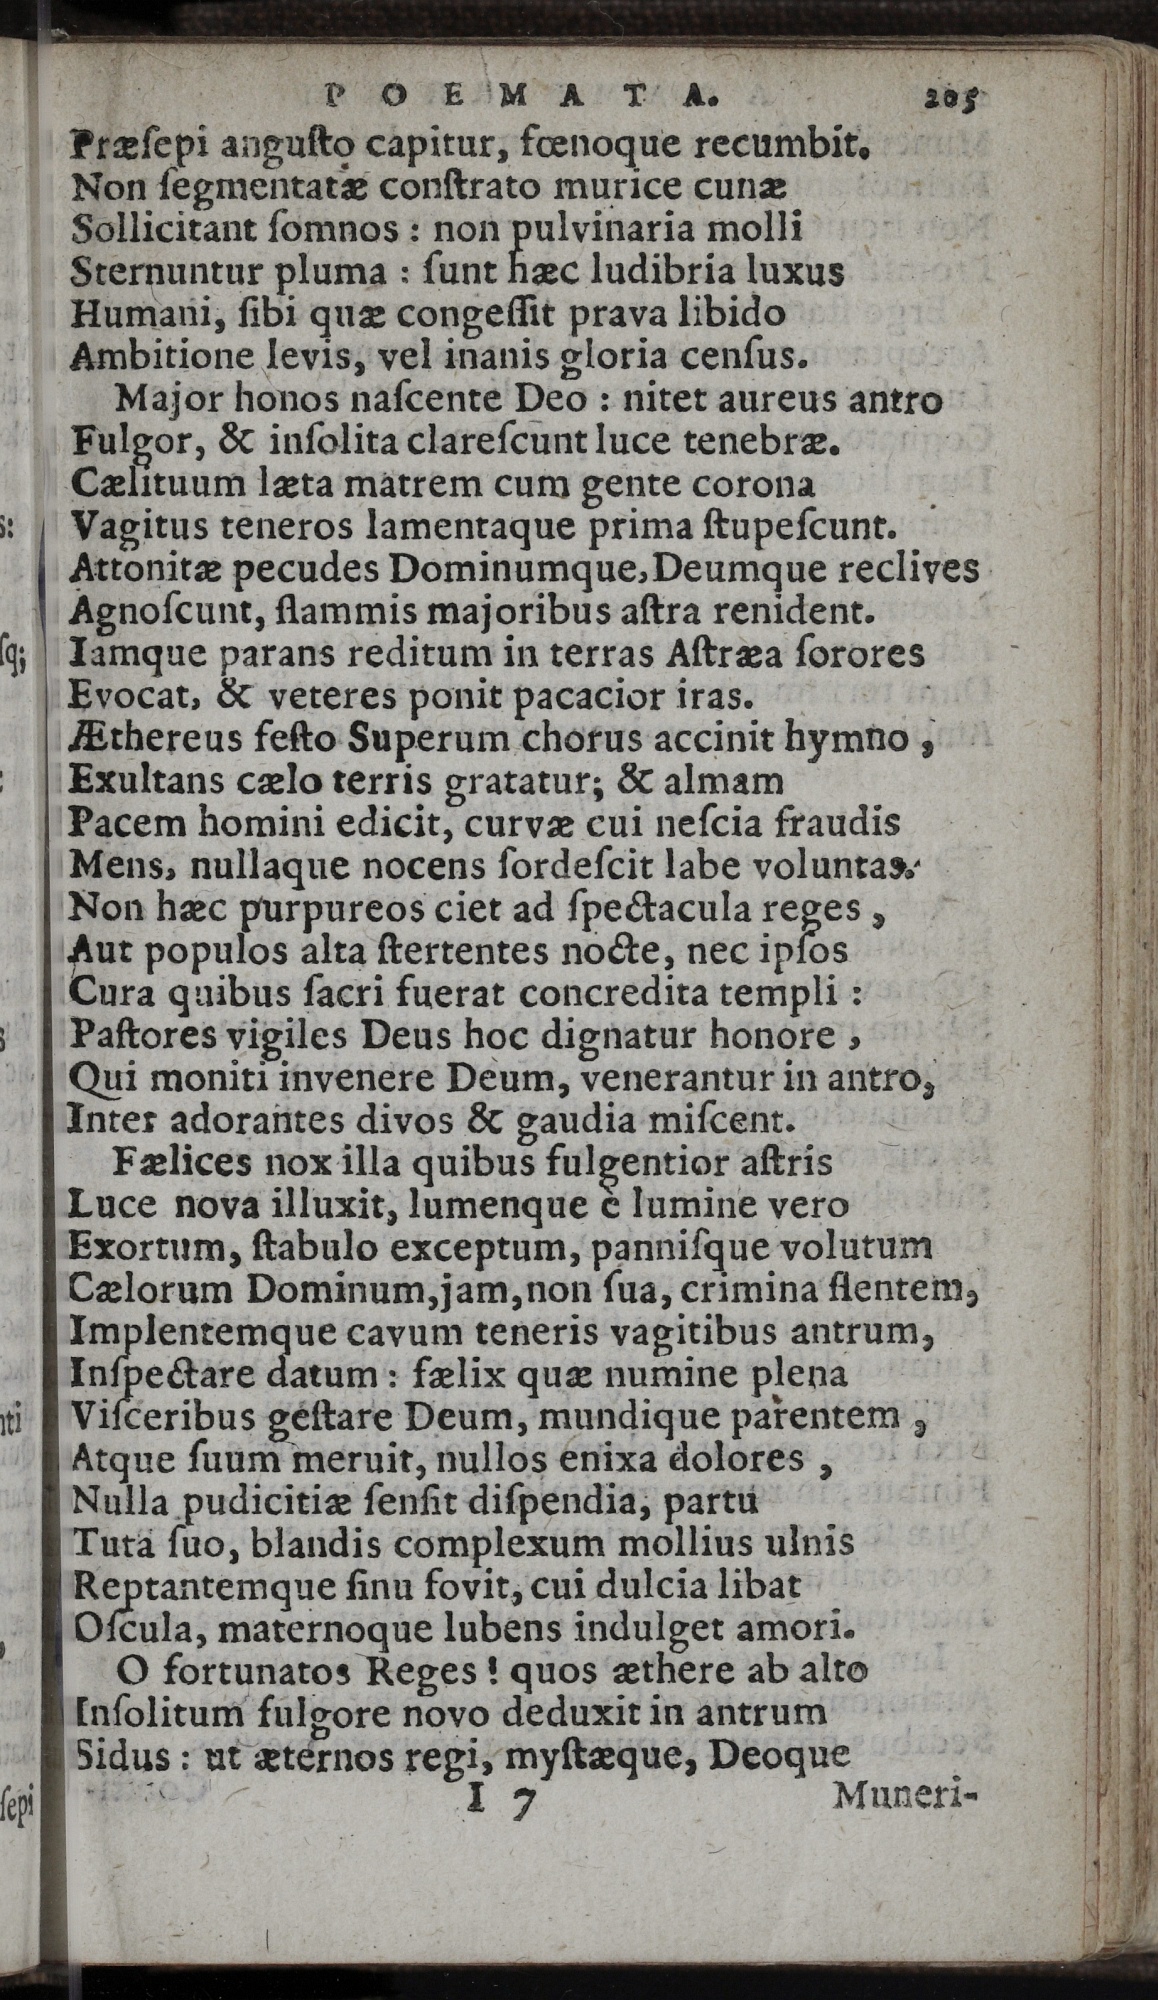 POEMATA. 205
Præſepi anguſto capitur, fœnoque recumbit.
Non ſegmentatæ conſtrato murice cunæ
Sollicitant ſomnos : non pulvinaria molli
Sternuntur pluma : ſunt hæc ludibria luxus
Humani, ſibi quæ congeſſit prava libido
Ambitione levis, vel inanis gloria cenſus.
Major honos naſcente Deo : nitet aureus antro
Fulgor, & inſolita clareſcunt luce tenebræ.
Cælituum læta matrem cum gente corona
Vagitus teneros lamentaque prima ſtupeſcunt.
Attonitæ pecudes Dominumque, Deumque reclives
Agnoſcunt, flammis majoribus aſtra renident.
Iamque parans reditum in terras Aſtræa ſorores
Evocat, & veteres ponit pacacior iras.
Æthereus feſto Superum chorus accinit hymno ,
Exultans cælo terris gratatur; & almam
Pacem homini edicit, curvæ cui neſcia fraudis
Mens, nullaque nocens ſordeſcit labe voluntas.
Non hæc purpureos ciet ad ſpectacula reges ,
Aut populos alta ſtertentes nocte, nec ipſos
Cura quibus ſacri fuerat concredita templi :
Paſtores vigiles Deus hoc dignatur honore ,
Qui moniti invenere Deum, venerantur in antro,
Inter adorantes divos & gaudia miſcent.
Fælices nox illa quibus fulgentior aſtris
Luce nova illuxit, lumenque è lumine vero
Exortum, ſtabulo exceptum, panniſque volutum
Cælorum Dominum, jam, non ſua, crimina flentem,
Implentemque cavum teneris vagitibus antrum,
Inſpectare datum : fælix quæ numine plena
Viſceribus geſtare Deum, mundique parentem ,
Atque ſuum meruit, nullos enixa dolores ,
Nulla pudicitiæ ſenſit diſpendia, partu
Tuta ſuo, blandis complexum mollius ulnis
Reptantemque ſinu fovit, cui dulcia libat
Oſcula, maternoque lubens indulget amori.
O fortunatos Reges ! quos æthere ab alto
Inſolitum fulgore novo deduxit in antrum
Sidus : ut æternos regi, myſtæque, Deoque
I 7 Muneri-